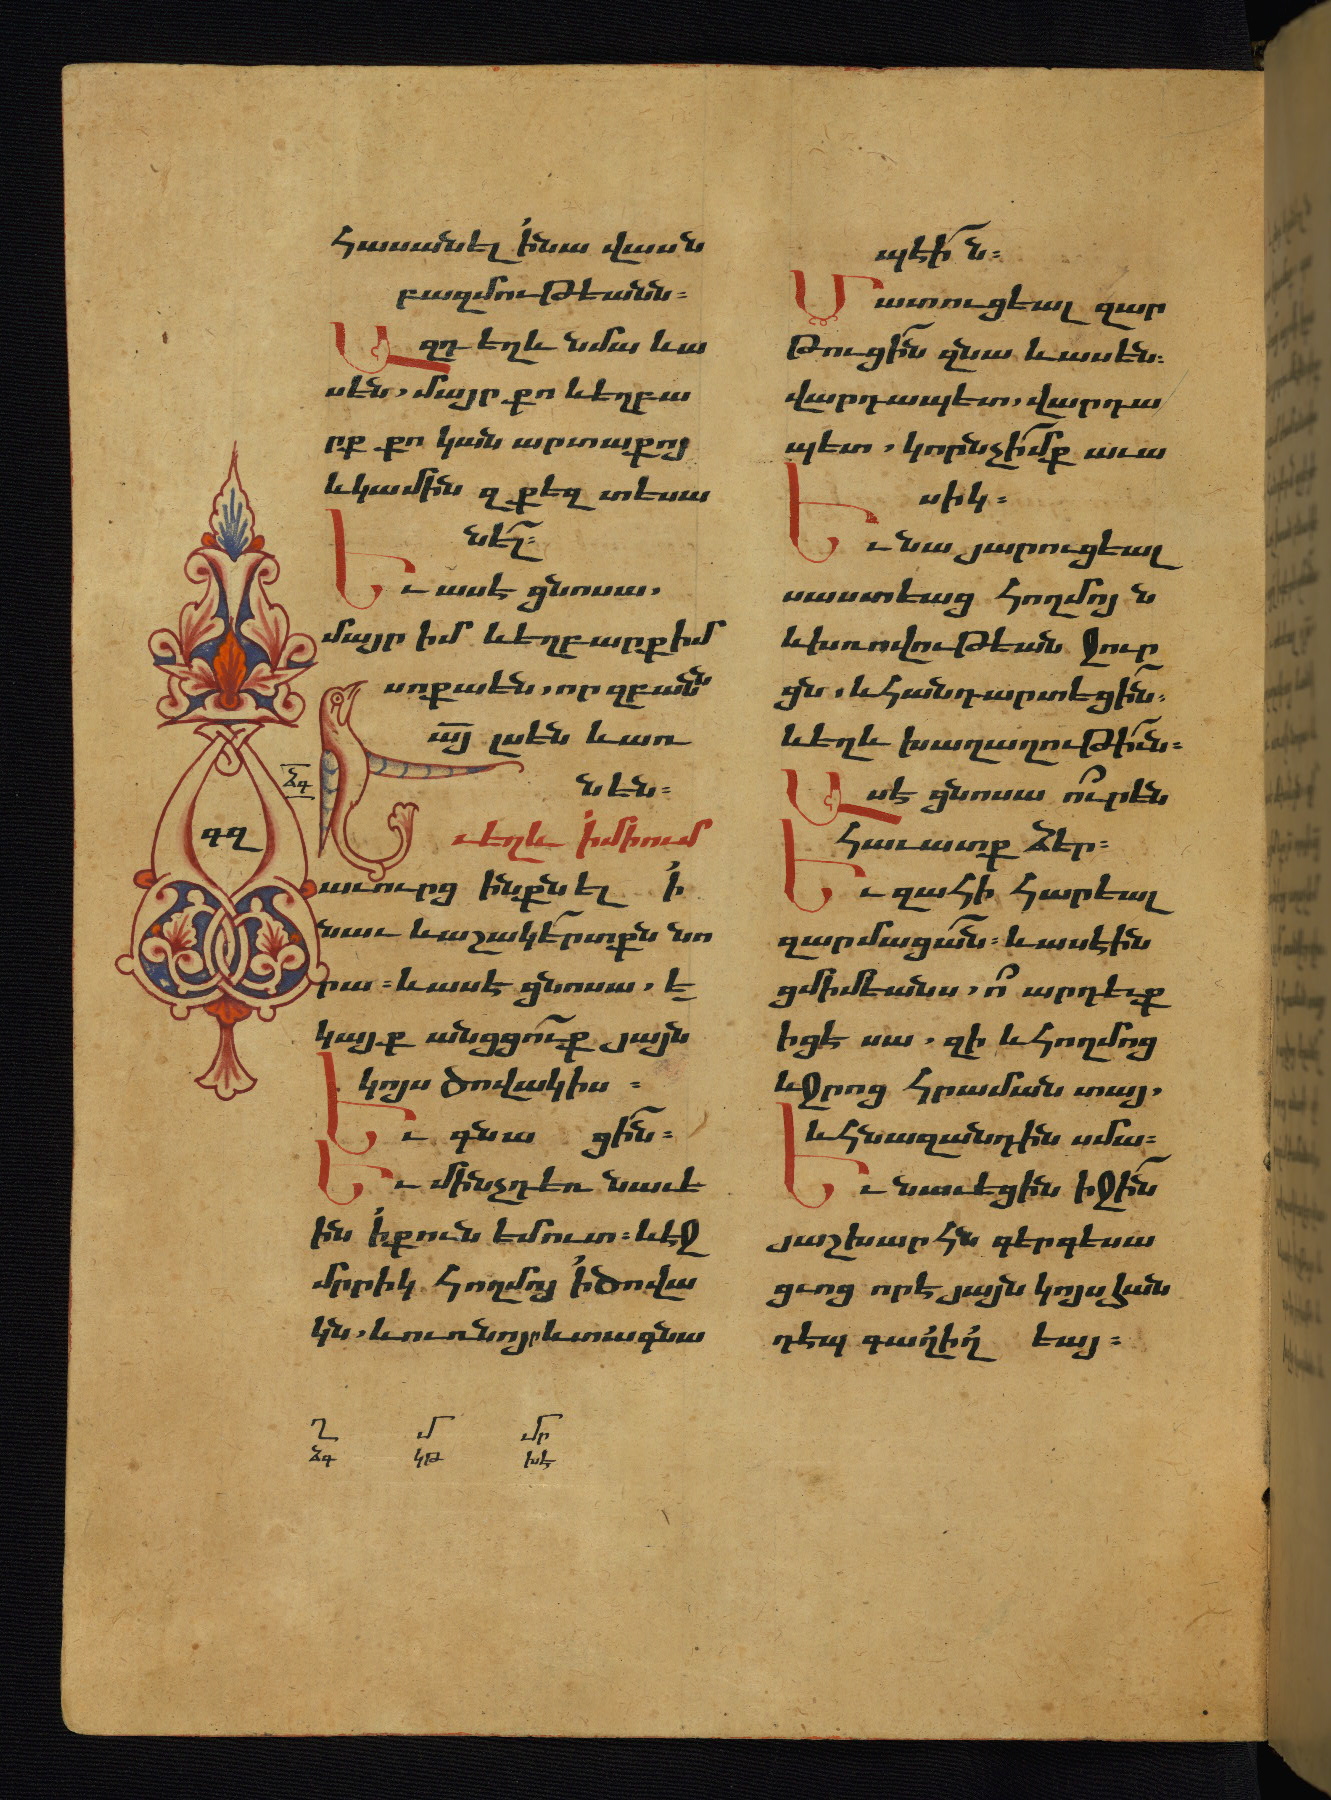 հասանել ՛ի նա վասն
բազմութեանն։
Ազդ եղև նմա և ա
սեն, մայր քո և եղբա
րք քո կան արտաքոյ
և կամին զքեզ տեսա
նել։
Եւ ասէ ցնոսա,
մայր իմ և եղբարք իմ
սոքա են, որ զբանն
այ լսեն և առ
նեն։
ւ եղև ՛ի միում
աւուրց ինքն ել ՛ի
նաւ և աշակերտքն նո
րա։ և ասէ ցնոսա, ե
կայք անցցուք յայն
կոյս ծովակիս։
Եւ գնացին։
Եւ մինչդեռ նաւէ
ին ՛ի քուն եմուտ։ և էջ
մրրիկ հողմոյ ՛ի ծովա
կն, և ուռնոյր և տագնա
պէին։
Մատուցեալ զար
թուցին զնա և ասեն։
վարդապետ, վարդա
պետ, կորնչիմք աւա
սիկ։
Եւ նա յարուցեալ
սաստեաց հողմոյն
և խռովութեան ջուր
ցն, և հանդարտեցին։
և եղև խաղաղութիւն։
Ասէ ցնոսա ո՞ւր են
հաւատք ձեր։
Եւ զահի հարեալ
զարմացան։ և ասէին
ցմիմեանս, ո՞ արդեւք
իցէ սա, զի և հողմոց
և ջրոց հրաման տայ,
և հնազանդին սմա։
Եւ նաւեցին իջին
յաշխարհն գերգեսա
ցւոց որ է յայն կոյս հան
դէպ գաղիղեայ։
ձգ
գզ
Ղ Մ Մր
ձգ կթ խէ